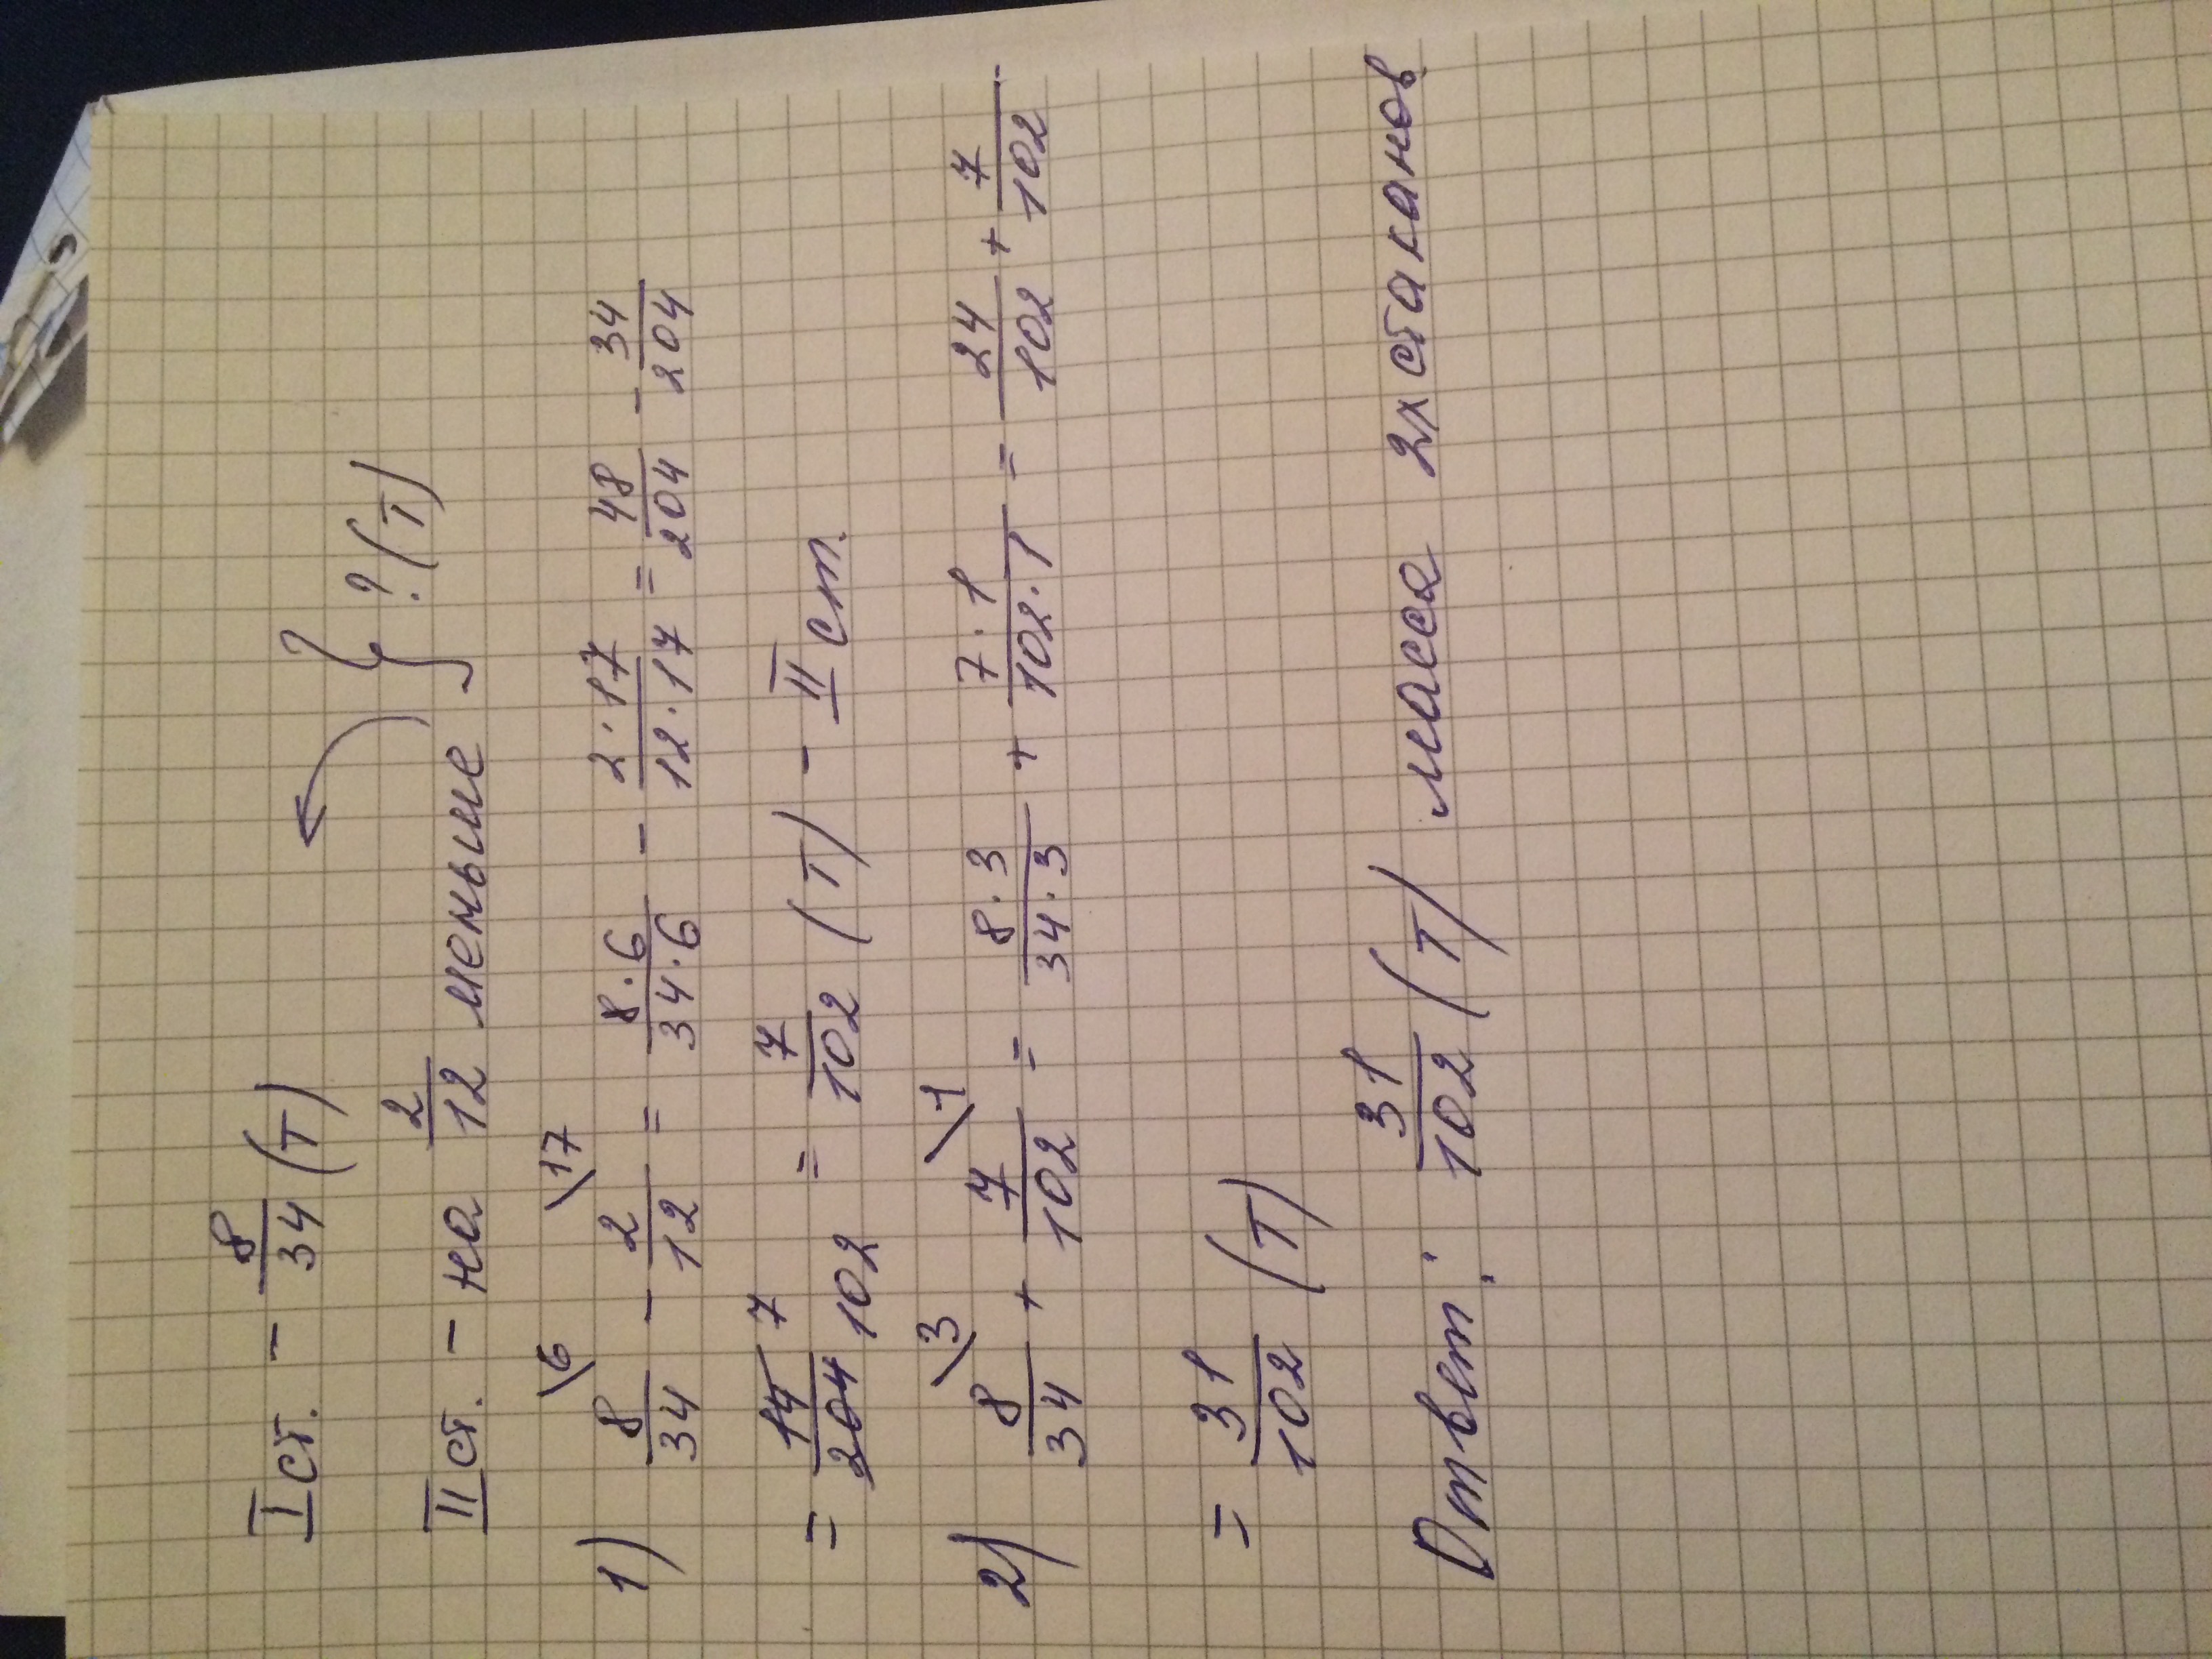 I ст. - 8/34 (т)
II ст. - на 2/12 меньше } ? (т)
1) 8/34 \6 - 2/12 \17 = 8·6/34·6 - 2·17/12·17 = 48/204 - 34/204
= 14/204 7 102 = 7/102 (т) - II ст.
2) 8/34 \3 + 7/102 \1 = 8·3/34·3 + 7·1/102·1 = 24/102 + 7/102
= 31/102 (т)
Ответ: 31/102 (т) масса 2х стаканов